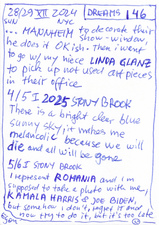 28/29 XII 2024 DREAMS 146
SUN NYC
... MANNHEIM to decorate their
show-window
he does it OK ish. Then I went
to go w/ my niece LINDA GLANZ
to pick up not used art pieces
in their office
4/5 I 2025 STONY BROOK
There is a bright clear blue
sunny sky/it makes me
melancolic because we will
die and all will be gone
5/6 I STONY BROOK
I represent ROMANIA and I'm
supposed to take a photo with me,
KAMALA HARRIS & JOE BIDEN,
but somehow I don't, regret it and
now try to do it, but it's too late